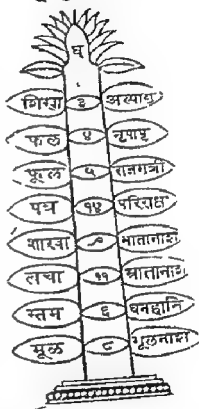 घ
शिखा ३ अल्पायु
फल ४ नृपापृ
फूल ५ राजमंत्री
पत्र १४ परिराक्ष
शाखा ९ मातानाश
लचा ११ भ्रातानाश
स्तम ६ धनहानि
मूळ ८ मूलनाश